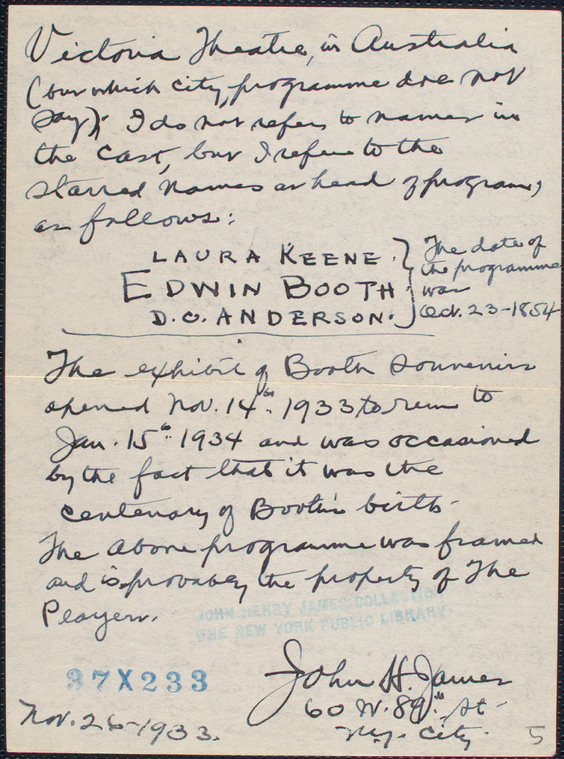 Victoria Theatre, in Australia
(but which city, programme doe not
say); I do not refer to names in
the cast, but I refer to the
starred names at head of program,
as follows:
LAURA KEENE.
EDWIN BOOTH
D.C. ANDERSON.
The date of
the programme
was
Oct. 23-1854
The exhibit of Booth Souvenirs
opened Nov. 14th. 1933 to run to
Jan. 15th 1934 and was occasioned
by the fact that it was the
centenary of Booth's birth-
The above programme was framed
and is probably the property of The
Players.
JOHN HENRY JAMES COLLECTION
THE NEW YORK PUBLIC LIBRARY
37X233
John H. James
60 W. 89th. St-
N.Y. City
Nov. 26-1933.
5